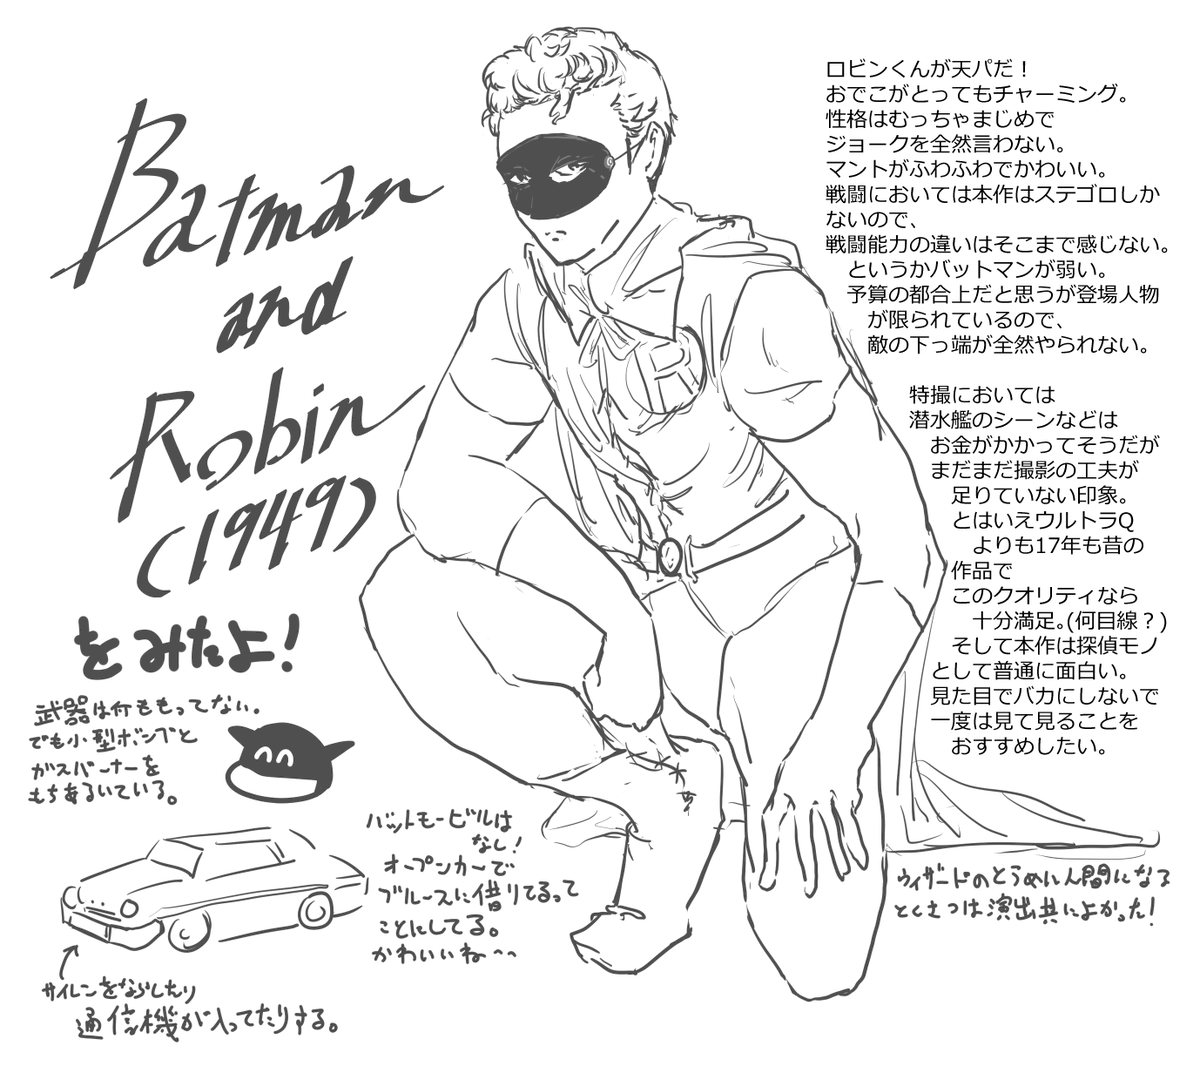 Batman
and
Robin
(1949)
をみたよ!
武器は何ももってない。
でも小型ボンブと
ガスバーナーを
もちあるいている。
バットモービルは
なし!
オープンカーで
ブルースに借りてるって
ことにしてる。
かわいいね〜〜
サイレンをならしたり
通信機が入ってたりする。
ロビンくんが天パだ！
おでこがとってもチャーミング。
性格はむっちゃまじめで
ジョークを全然言わない。
マントがふわふわでかわいい。
戦闘においては本作はステゴロしか
ないので、
戦闘能力の違いはそこまで感じない。
というかバットマンが弱い。
予算の都合上だと思うが登場人物
が限られているので、
敵の下っ端が全然やられない。
特撮においては
潜水艦のシーンなどは
お金がかかってそうだが
まだまだ撮影の工夫が
足りていない印象。
とはいえウルトラQ
よりも17年も昔の
作品で
このクオリティなら
十分満足。(何目線？)
そして本作は探偵モノ
として普通に面白い。
見た目でバカにしないで
一度は見て見ることを
おすすめしたい。
ウィザードのとうめいにん間になる
とくさつは演出共によかった!
R